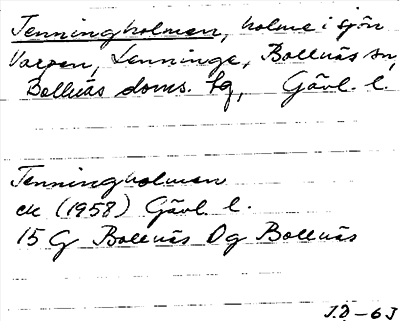 Jenningholmen, holme i sjön
Varpen, Jenninge, Bollnäs sn,
Bollnäs doms. tg, Gävl. l.
Jenningholmen
ek (1958) Gävl. l.
15 G Bollnäs Dg Bollnäs
J.D-63